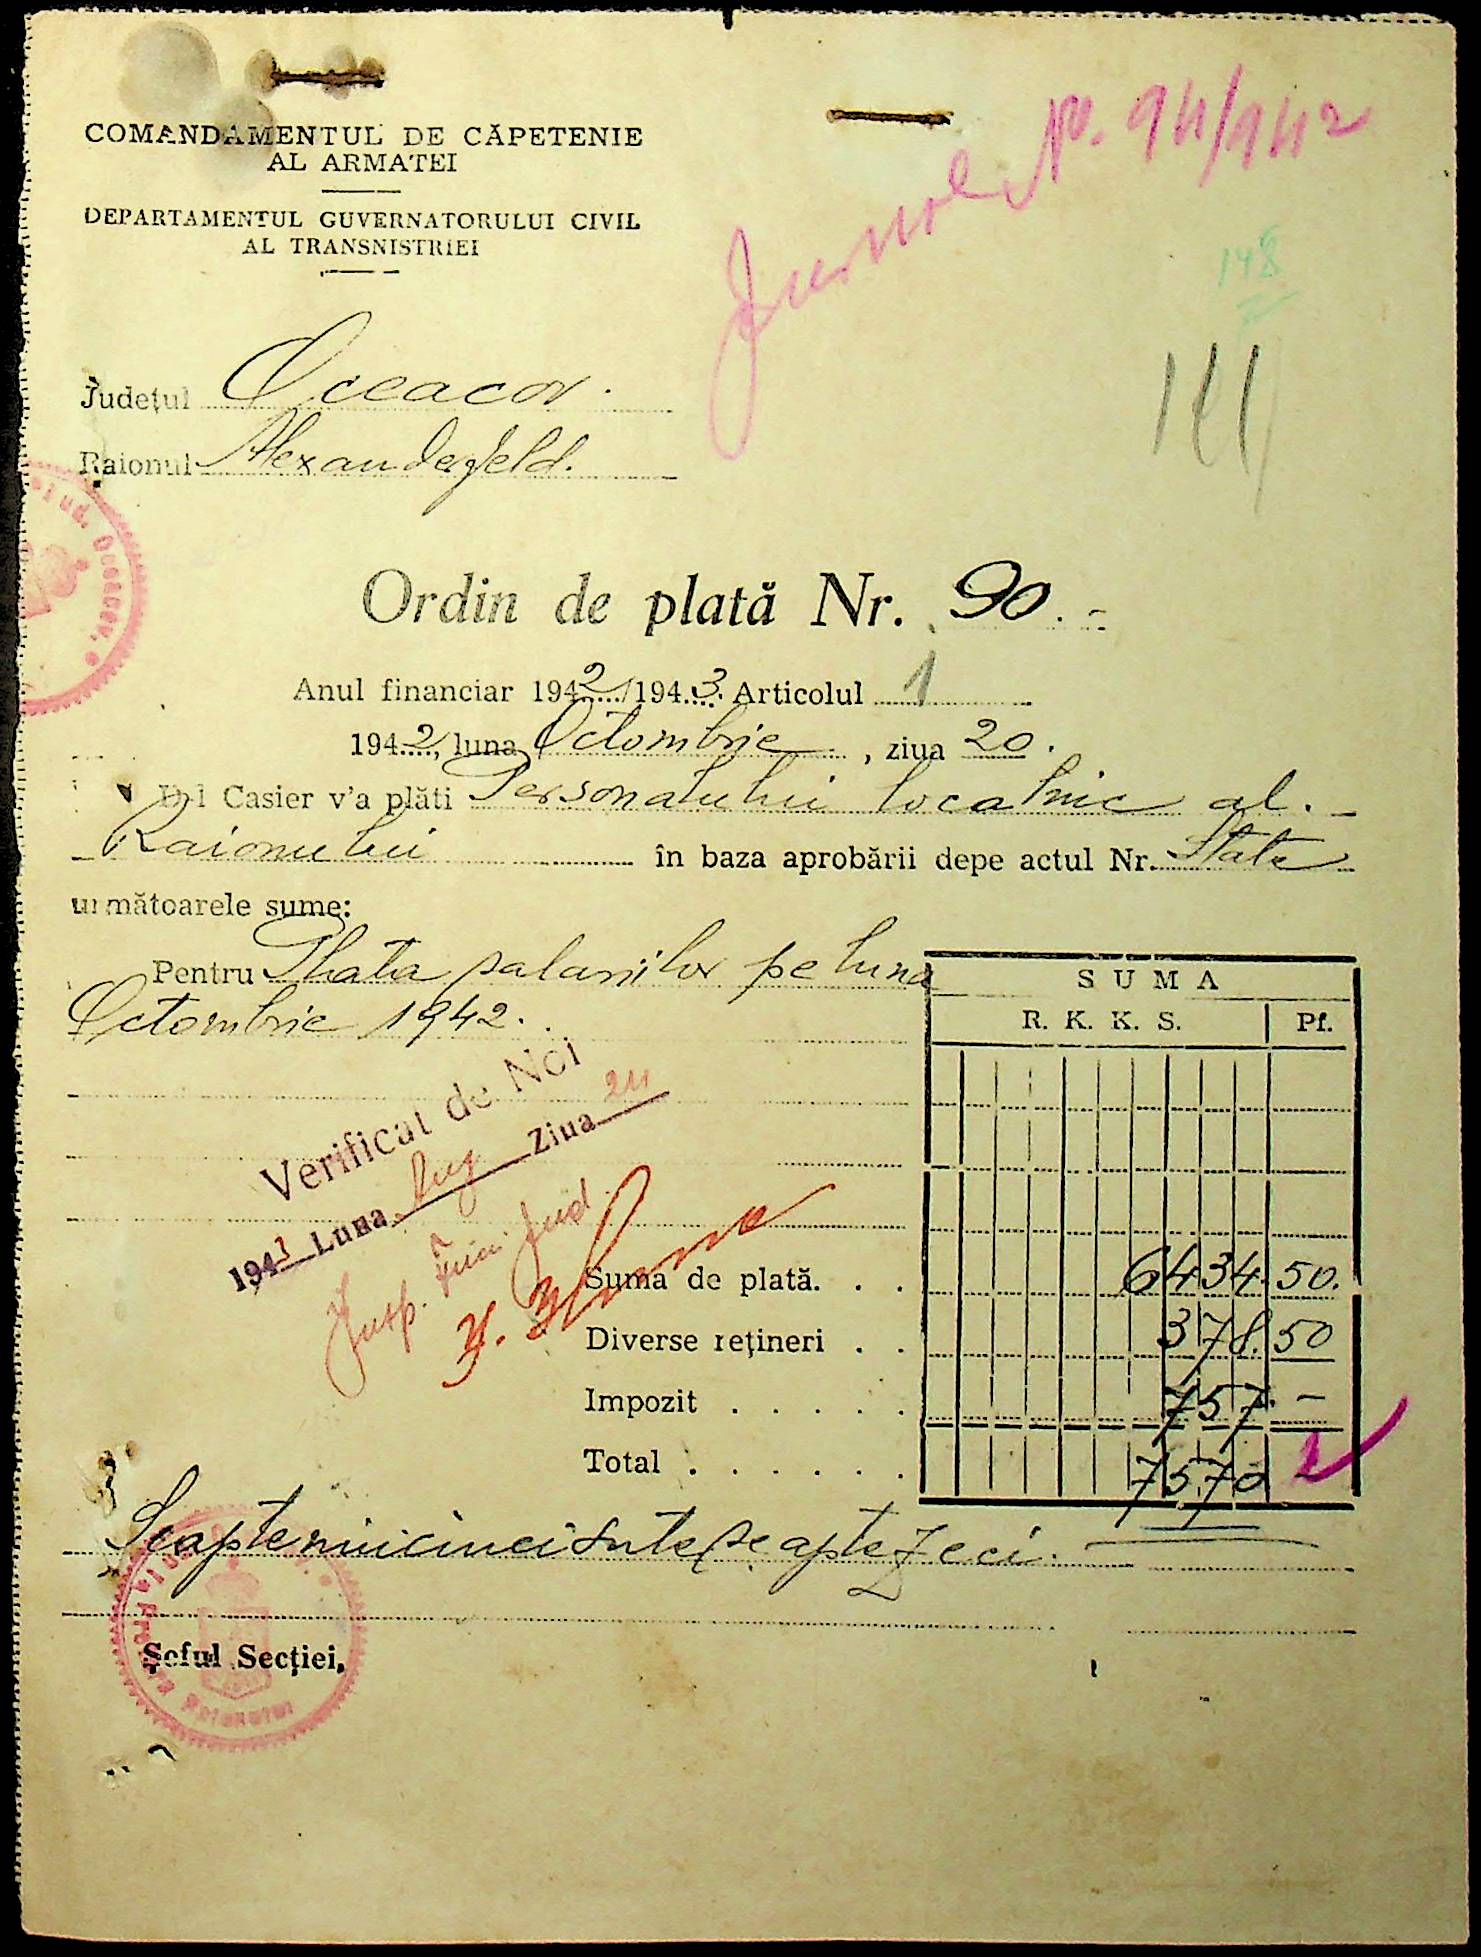 COMANDAMENTUL DE CĂPETENIE
AL ARMATEI
DEPARTAMENTUL GUVERNATORULUI CIVIL
AL TRANSNISTRIEI
Jurnal No. 94/942
148
Județul Oceacov.
Raionul Alexanderfeld.
jud. Oceacov.
Ordin de plată Nr. 90.-
Anul financiar 1942/1943. Articolul 1
1942, luna Octombrie, ziua 20.
D-l Casier v'a plăti Personalului localnic al.
Raionului în baza aprobării depe actul Nr. State
următoarele sume:
Pentru Plata salariilor pe luna
Octombrie 1942.
SUMA
R. K. K. S. Pf.
Verificat de Noi
1943 Luna Aug Ziua 24
Insp. Fin. Jud.
Suma de plată. . . 6434.50.
Diverse rețineri . . 378.50
Impozit . . . . . 757.-
Total . . . . . . 7570
Șaptemiicincisuteșaptezeci.
Șeful Secției,
Pretura Raionului